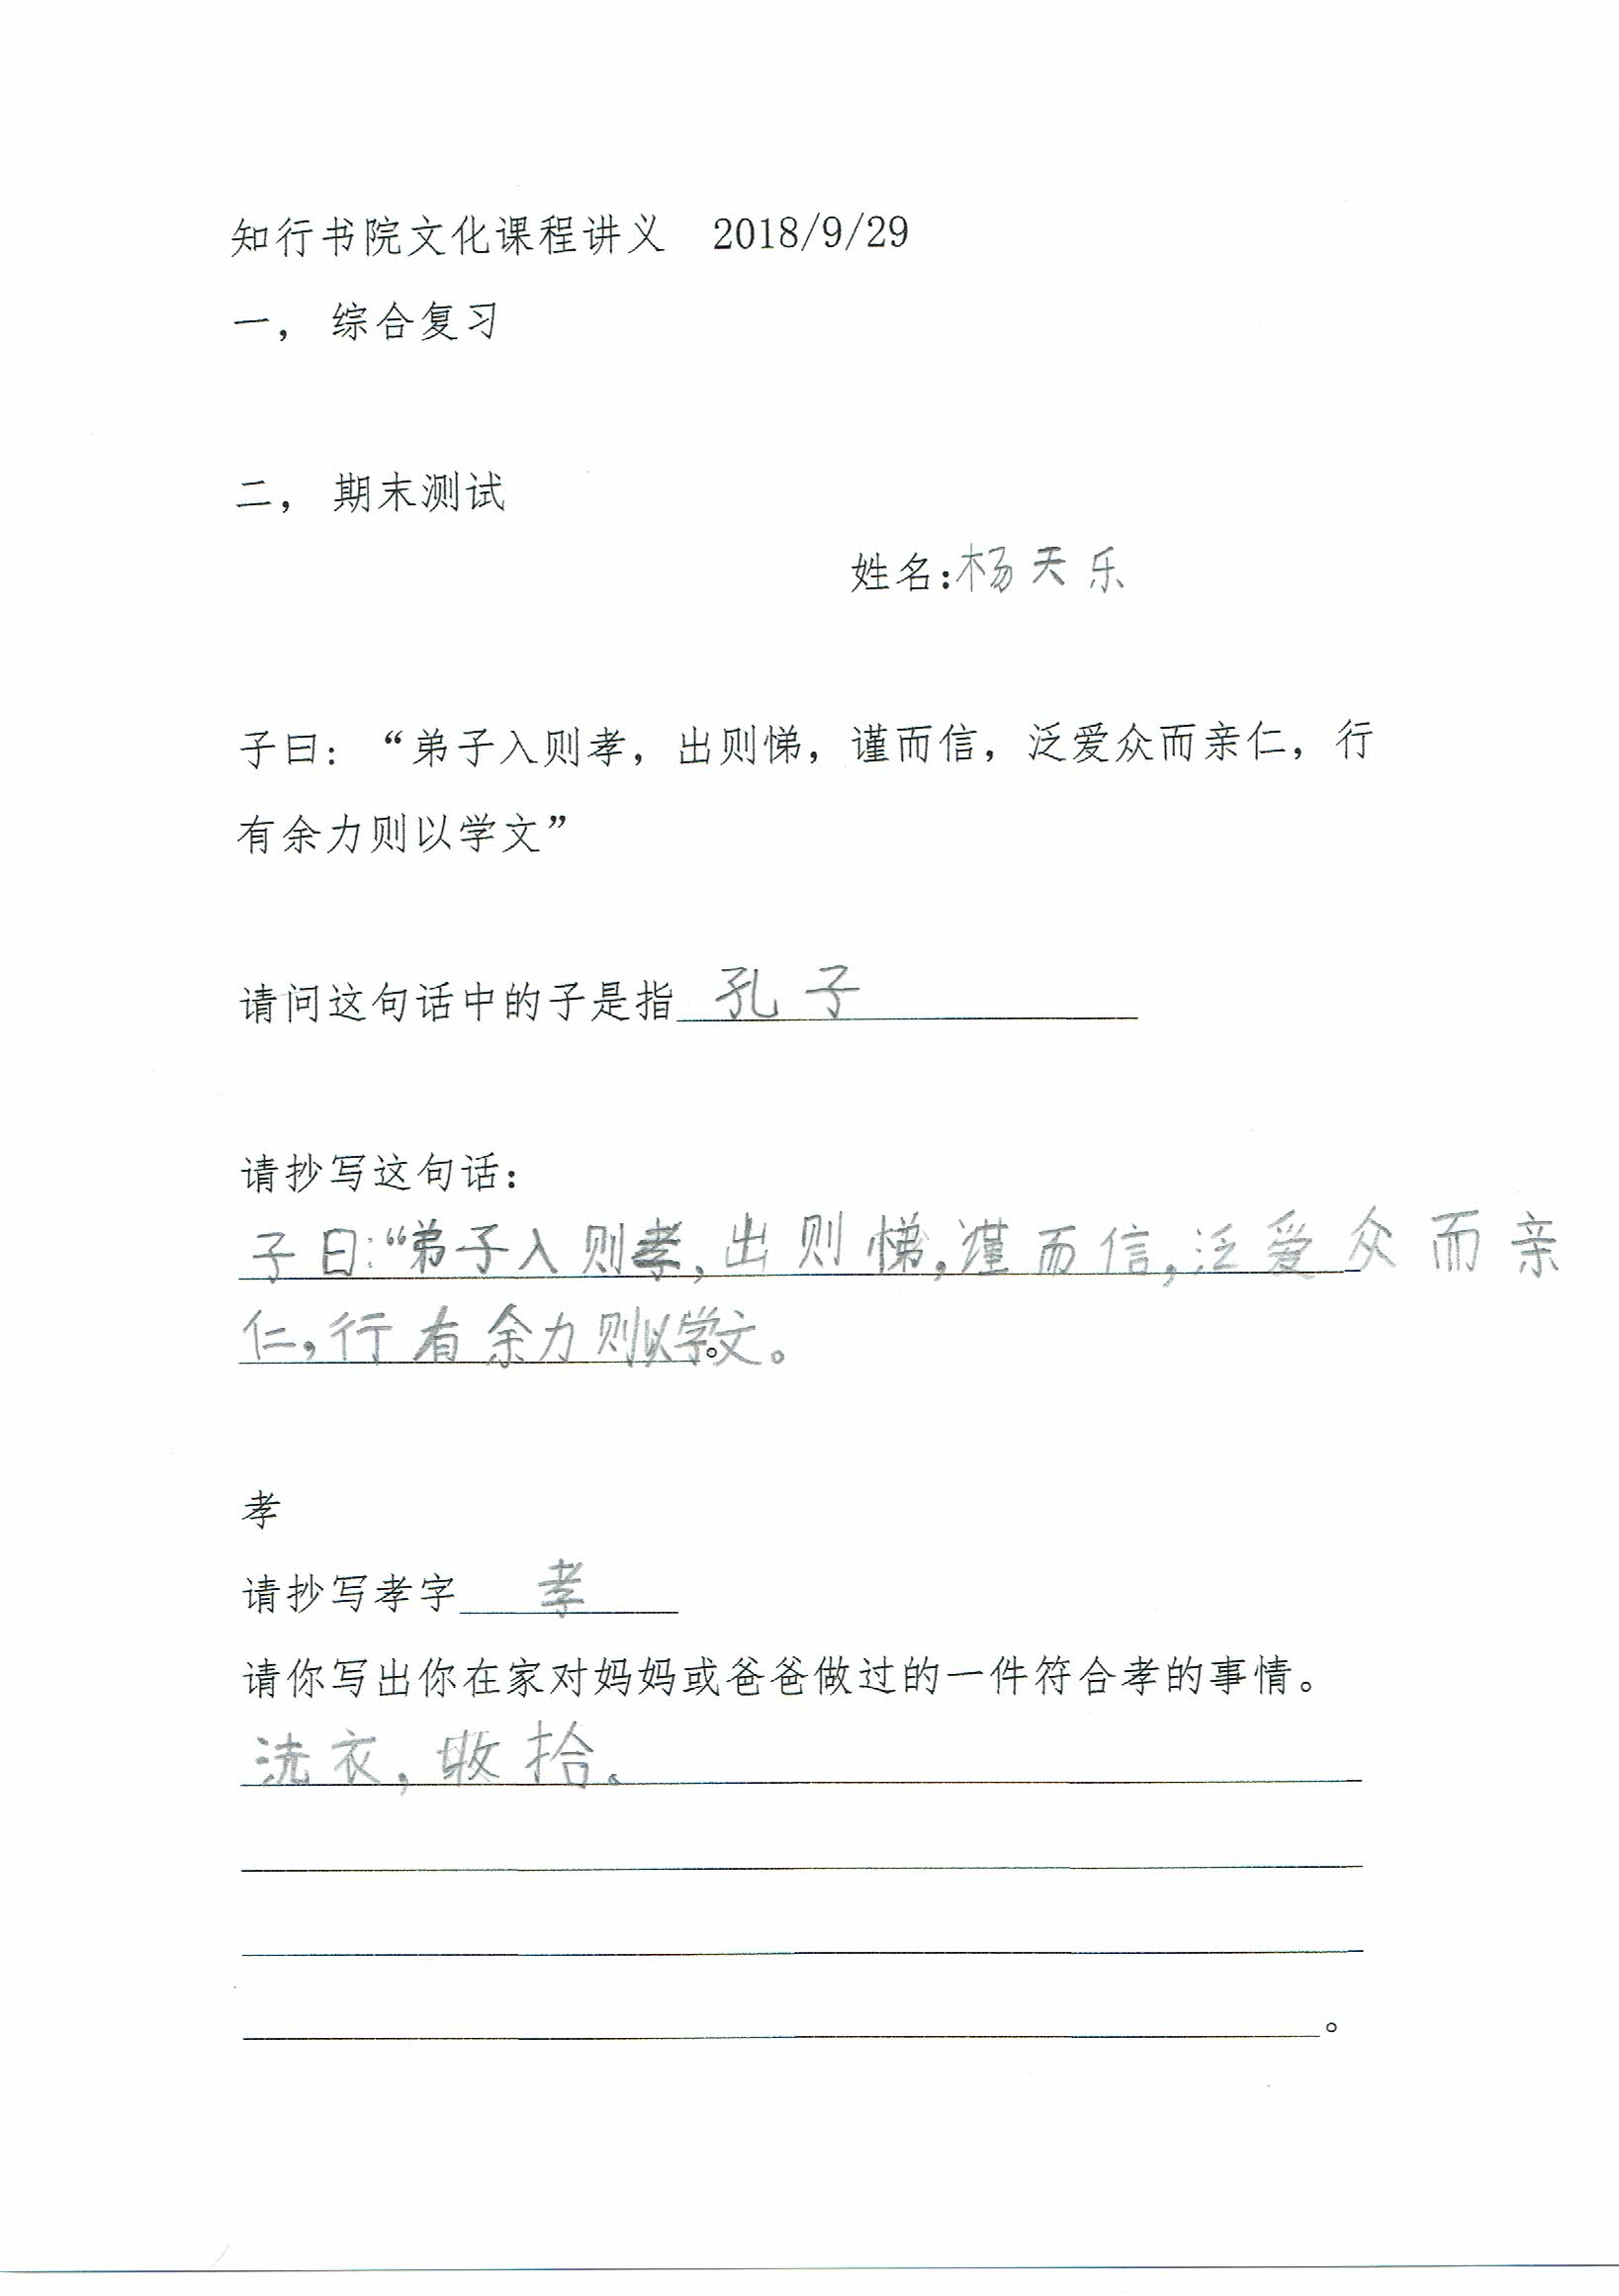 知行书院文化课程讲义 2018/9/29
一， 综合复习
二， 期末测试
姓名：杨天乐
子曰：“弟子入则孝，出则悌，谨而信，泛爱众而亲仁，行
有余力则以学文”
请问这句话中的子是指 孔子
请抄写这句话：
子曰：“弟子入则孝，出则悌，谨而信，泛爱众而亲
仁，行有余力则以学文。。
孝
请抄写孝字 孝
请你写出你在家对妈妈或爸爸做过的一件符合孝的事情。
洗衣，收拾。
。